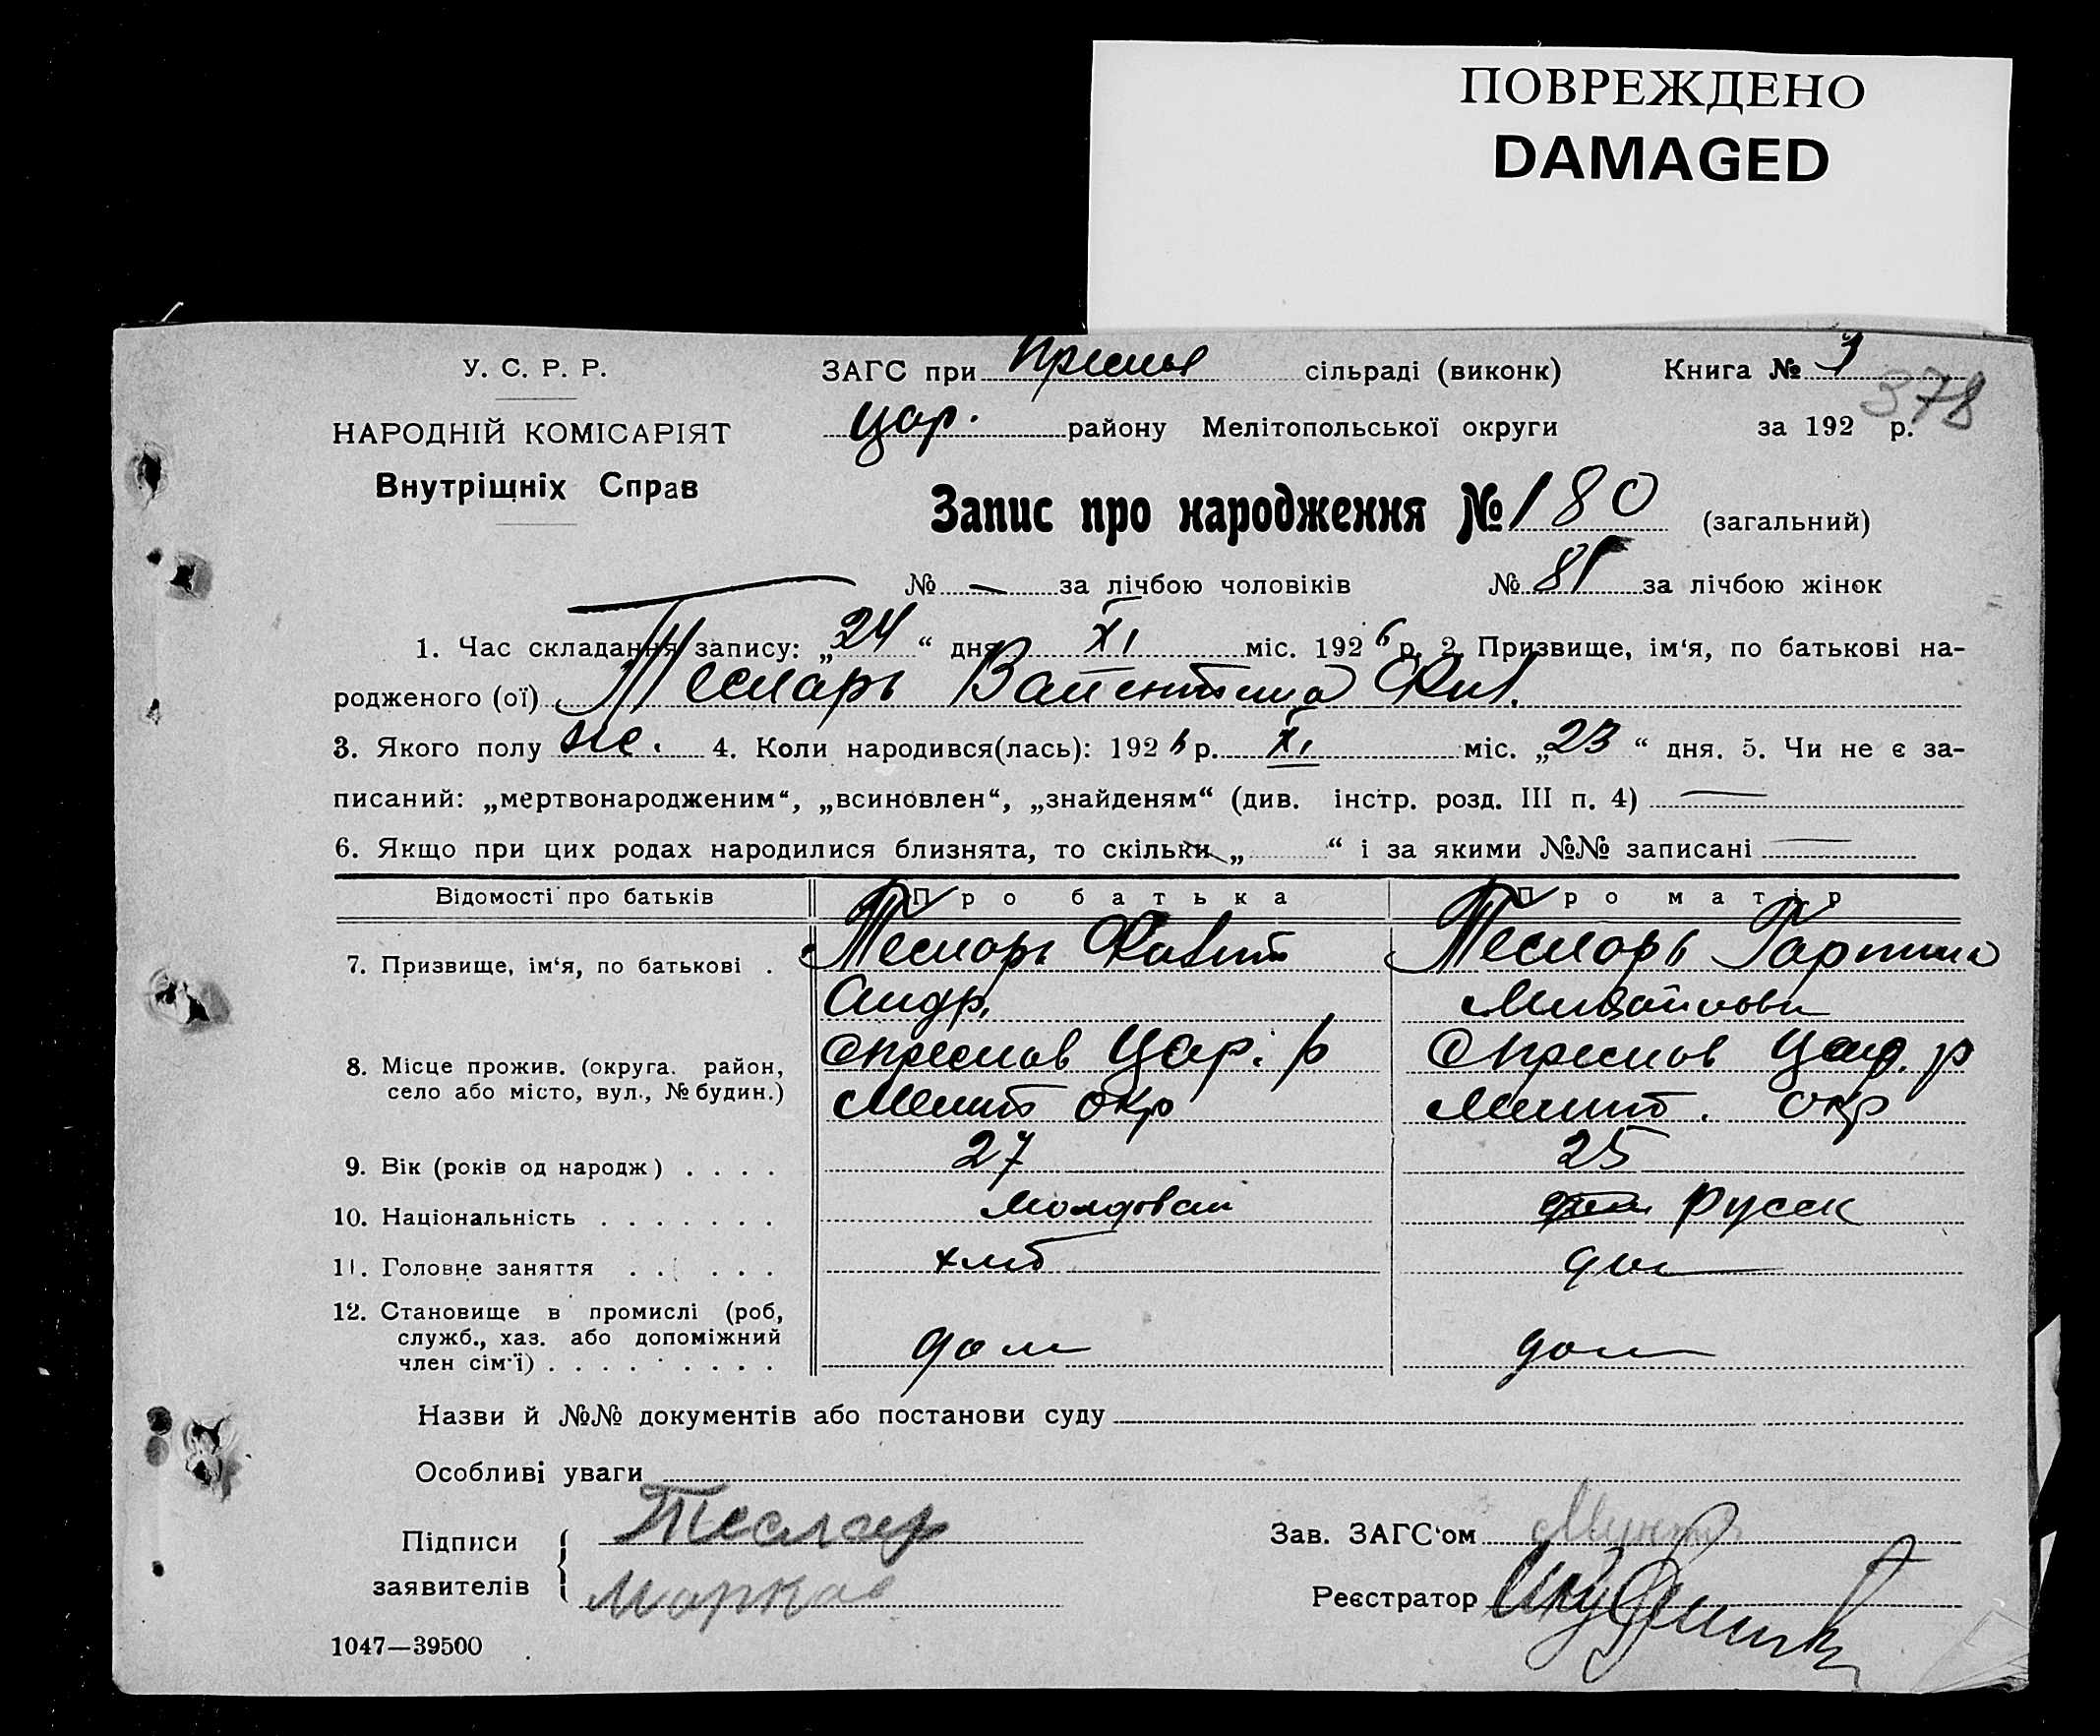 ПОВРЕЖДЕНО
DAMAGED
У. С. Р. Р.
НАРОДНІЙ КОМІСАРІЯТ
Внутріщніх Справ
ЗАГС при сільраді (виконк)
Книга № 3
378
Цар. району Мелітопольської округи
за 192 р.
Запис про народження № 180 (загальний)
№ — за лічбою чоловіків № 81 за лічбою жінок
1. Час складання запису: „24“ дня XI міс. 1926 р. 2. Призвище, ім‘я, по батькові на-
родженого (ої) Тесларь Валентина
3. Якого полу жс. 4. Коли народився(лась): 1926 р. XI міс. „23“ дня. 5. Чи не є за-
писаний: „мертвонародженим“, „всиновлен“, „знайденям“ (див. інстр. розд. III п. 4) —
6. Якщо при цих родах народилися близнята, то скільки „ “ і за якими №№ записані —
Відомості про батьків
Про батька
Про матір
7. Призвище, ім‘я, по батькові .
Тесларь
Андр.
Тесларь
Михайловн
8. Місце прожив. (округа. район,
село або місто, вул., № будин.)
Цар. р
Мелит окр
Цар. р
Мелит. окр
9. Вік (років од народж) . . . .
27
25
10. Національність . . . . . . .
Молдован
русск
11. Головне заняття . . . . . .
хлб
дом
12. Становище в промислі (роб,
служб., хаз. або допоміжний
член сім‘ї) . . . . . . . . .
дом
дом
Назви й №№ документів або постанови суду
Особливі уваги
Підписи
заявителів
Теслар
Зав. ЗАГС‘ом
Реєстратор
1047—39500